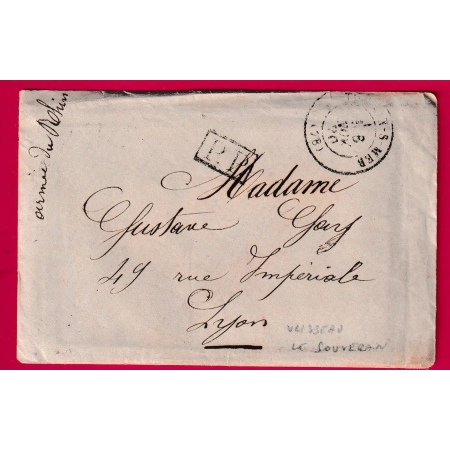 armée du Rhin
S-MER
P.P.
Madame
Gustave Gay
49 rue Impériale
Lyon
VAISSEAU
LE SOUVERAIN